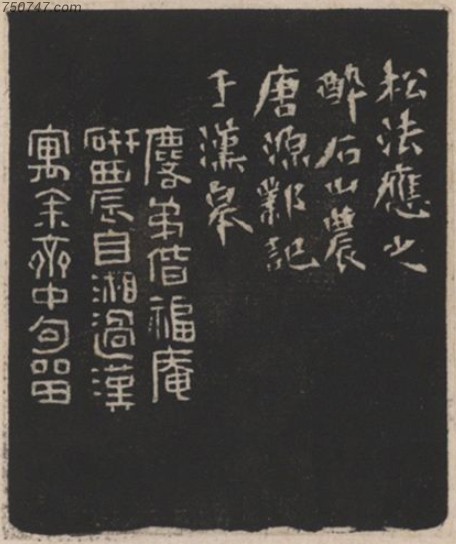 750747.com
松法應之
酔石山農
唐源鄴記
于漢皋
麐弟偕福庵
丙辰自湘過漢
寓余齋中句留